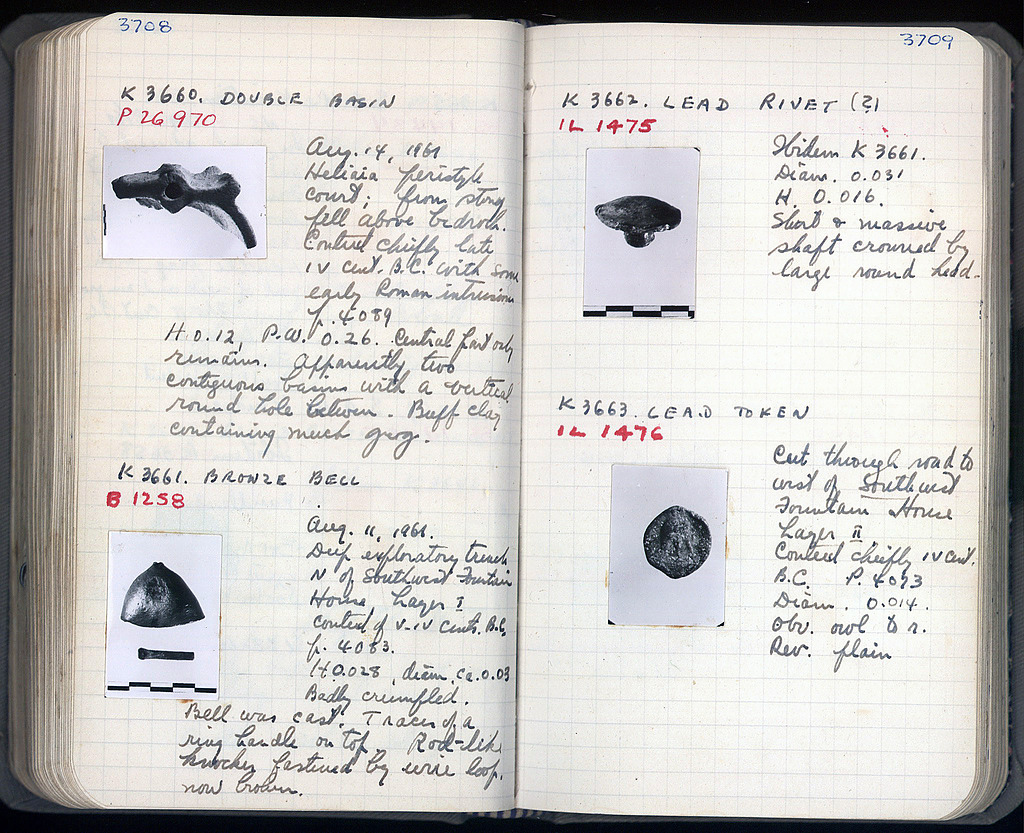 3708
K 3660. DOUBLE BASIN
P 26 970
Aug. 14, 1961
Heliaia peristyle
court; from stony
fell above bedrock.
Context chiefly late
IV cent. B.C. with some
early Roman intrusions
p. 4089
H 0.12, P.W. 0.26. Central part only
remains. Apparently two
contiguous basins with a vertical
round hole between. Buff clay
containing much grog.
K 3661. BRONZE BELL
B 1258
Aug. 11, 1961.
Deep exploratory trench
N of Southwest Fountain
House, Layer I
context of V-IV cents. B.C.
p. 4083.
H 0.028, diam. ca. 0.03
Badly crumpled.
Bell was cast. Traces of a
ring handle on top. Rod-like
knocker fastened by wire loop,
now broken.
3709
K 3662. LEAD RIVET (?)
IL 1475
Ibidem K 3661.
Diam. 0.031
H. 0.016.
Short & massive
shaft crowned by
large round head.
K 3663. LEAD TOKEN
IL 1476
Cut through road to
west of Southwest
Fountain House
Layer II.
Context chiefly IV cent.
B.C. P. 4093
Diam. 0.014.
Obv. owl to r.
Rev. plain